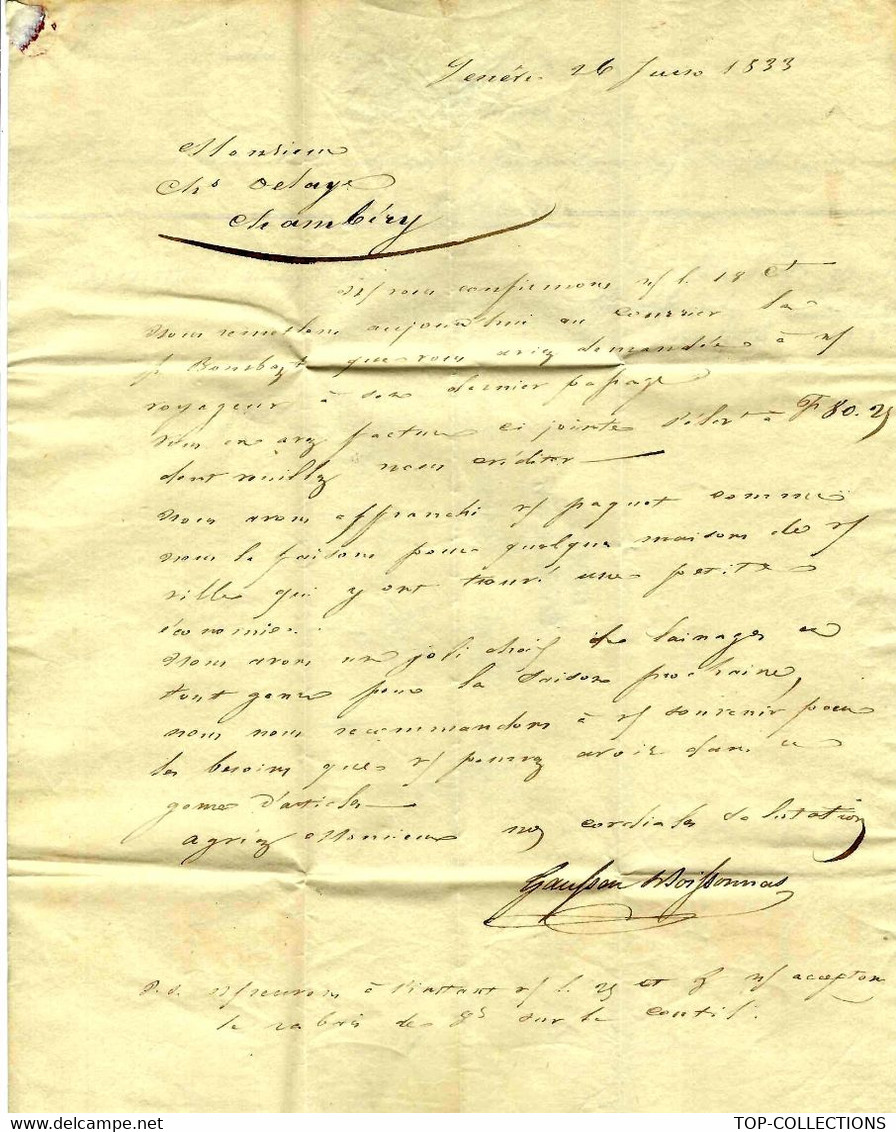 Genève 26 Juin 1833
Monsieur
Chs Delaye
Chambéry
vous confirmons n/ l. 18 Ct
Nous remettons aujourd'hui au courrier la
p. que vous aviez demandée à n/
voyageur à son dernier passage
Vous en avez facture ci jointe s'élevt à F 80. 25
dont veuillez nous créditer
Nous avons affranchi v/ paquet comme
nous le faisons pour quelques maisons de v/
ville qui y ont trouvé une petite
économie.
Nous avons un joli choix de lainages en
tout genre pour la saison prochaine,
nous nous recommandons à v/ souvenir pour
les besoins que v/ pourrez avoir dans ce
genre d'articles
Agréez Monsieur nos cordiales salutations
Gaussen Boissonnas
P.S. Recevons à l'instant v/ l. 25 et n/ acceptons
le rabais de sur le coutil.
TOP-COLLECTIONS